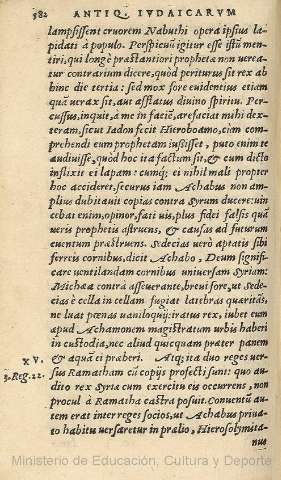 582 ANTIQ. IVDAICARVM
lampsissent cruorem Nabuthi opera ipsius la-
pidati à populo. Perspicuū igitur esse istū men-
tiri, qui longè præstantiori propheta non verea-
tur contrarium dicere, quòd periturus sit rex ab
hinc die tertia: sed mox fore euidentius etiam
quā verax sit, aut afflatus diuino spiritu. Per-
cussus, inquit, à me in faciē, arefaciat mihi dex-
teram, sicut Iadon fecit Hieroboamo, cùm com-
prehendi eum prophetam iussisset, puto enim te
audiuisse, quòd hoc ita factum sit, & cùm dicto
inflixit ei lapam: cumq; ei nihil mali propter
hoc accideret, securus iam Achabus non am-
plius dubitauit copias contra Syrum ducere: vin
cebat enim, opinor, fati vis, plus fidei falsis quā
veris prophetis astruens, & causas ad futurum
euentum præstruens. Sedecias verò aptatis sibi
ferreis cornibus, dicit Achabo, Deum signifi-
care ventilandam cornibus vniuersam Syriam:
Michæa contrà asseuerante, breui fore, vt Sede-
cias è cella in cellam fugiat latebras quæritās,
ne luat pœnas vaniloquij: iratus rex, iubet eum
apud Achamonem magistratum vrbis haberi
in custodia, nec aliud quicquam præter panem
XV. & aquā ei præberi. Atq; ita duo reges ver-
3. Reg. 22. sus Ramatham cū copijs profecti sunt: quo au-
dito rex Syriæ cum exercitu eis occurrens, non
procul à Ramatha castra posuit. Conuentū au-
tem erat inter reges socios, vt Achabus priua-
to habitu versaretur in prælio, Hierosolymita-
nus
Ministerio de Educación, Cultura y Deporte